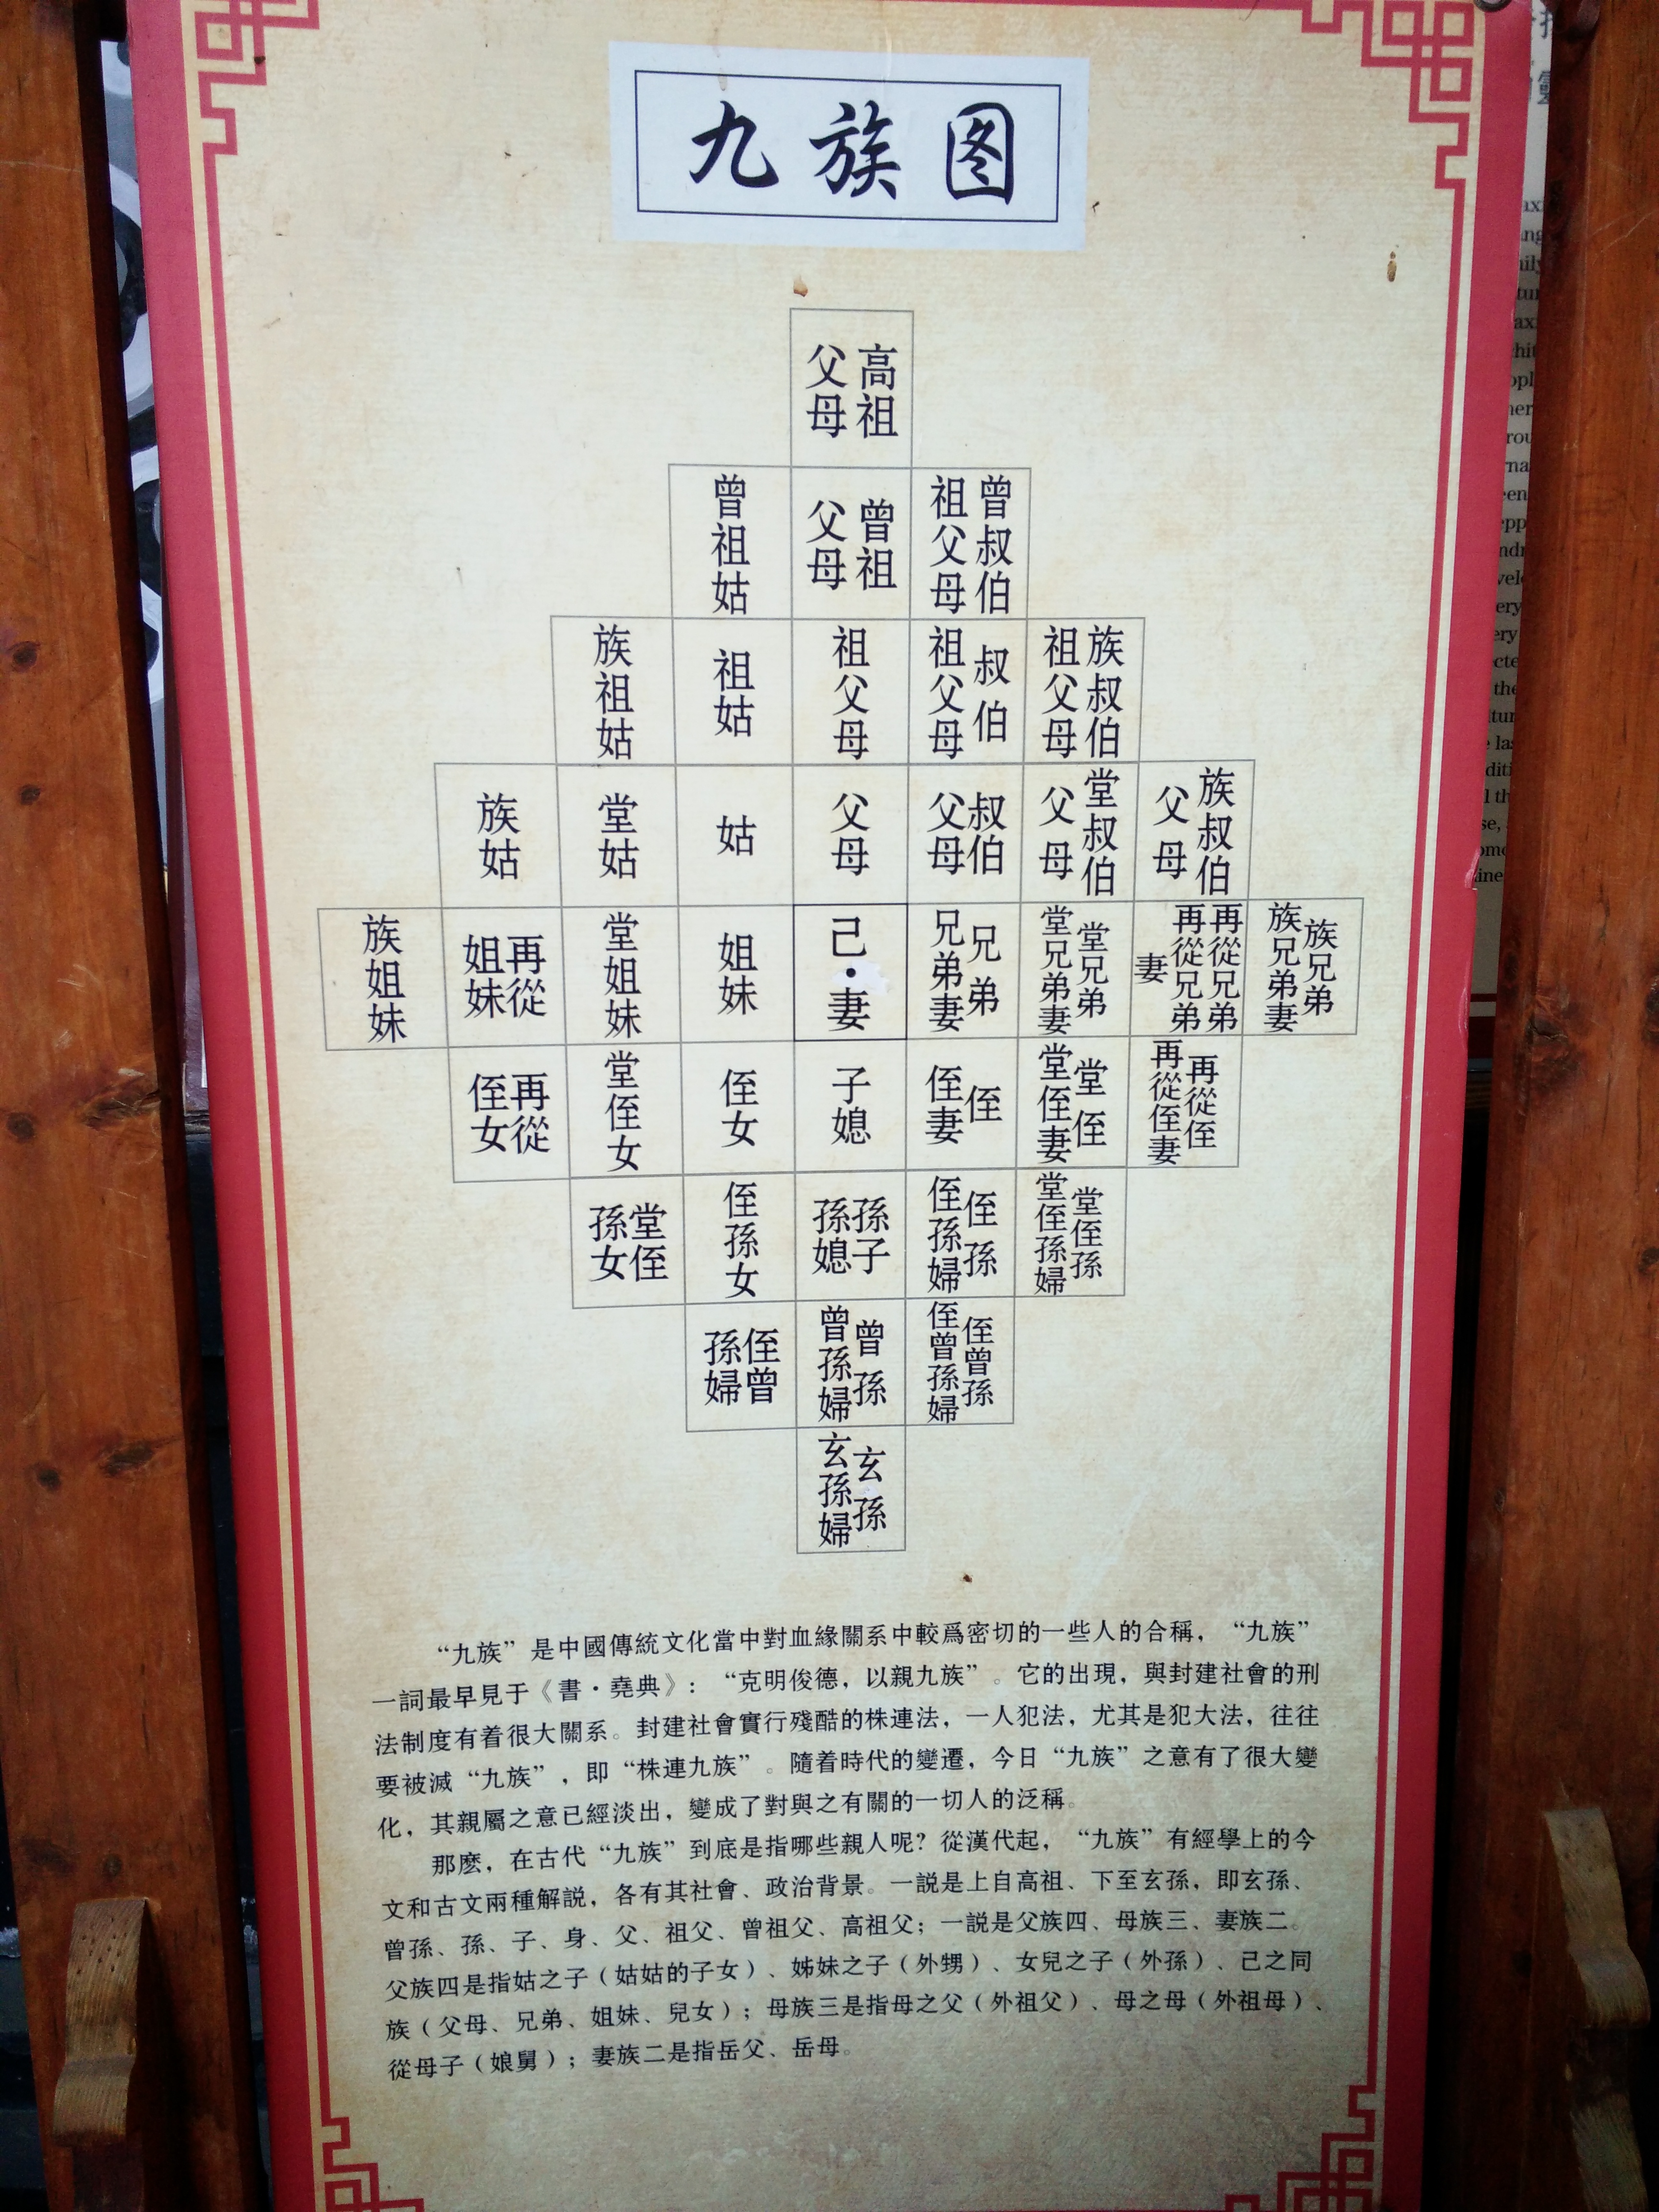 九族图
高祖父母
曾祖姑
曾祖父母
曾叔伯祖父母
族祖姑
祖姑
祖父母
叔伯祖父母
族叔伯祖父母
族姑
堂姑
姑
父母
叔伯父母
堂叔伯父母
族叔伯父母
族姐妹
再從姐妹
堂姐妹
姐妹
己·妻
兄弟
兄弟妻
堂兄弟
堂兄弟妻
再從兄弟
再從兄弟妻
族兄弟
族兄弟妻
再從侄女
堂侄女
侄女
子媳
侄
侄妻
堂侄
堂侄妻
再從侄
再從侄妻
堂侄孫女
侄孫女
孫子
孫媳
侄孫
侄孫婦
堂侄孫
堂侄孫婦
侄曾孫婦
曾孫
曾孫婦
侄曾孫
侄曾孫婦
玄孫
玄孫婦
“九族”是中國傳統文化當中對血緣關系中較爲密切的一些人的合稱，“九族”
一詞最早見于《書·堯典》：“克明俊德，以親九族”。它的出現，與封建社會的刑
法制度有着很大關系。封建社會實行殘酷的株連法，一人犯法，尤其是犯大法，往往
要被滅“九族”，即“株連九族”。隨着時代的變遷，今日“九族”之意有了很大變
化，其親屬之意已經淡出，變成了對與之有關的一切人的泛稱。
那麽，在古代“九族”到底是指哪些親人呢？從漢代起，“九族”有經學上的今
文和古文兩種解説，各有其社會、政治背景。一説是上自高祖、下至玄孫，即玄孫、
曾孫、孫、子、身、父、祖父、曾祖父、高祖父；一説是父族四、母族三、妻族二。
父族四是指姑之子（姑姑的子女）、姊妹之子（外甥）、女兒之子（外孫）、己之同
族（父母、兄弟、姐妹、兒女）；母族三是指母之父（外祖父）、母之母（外祖母）、
從母子（娘舅）；妻族二是指岳父、岳母。